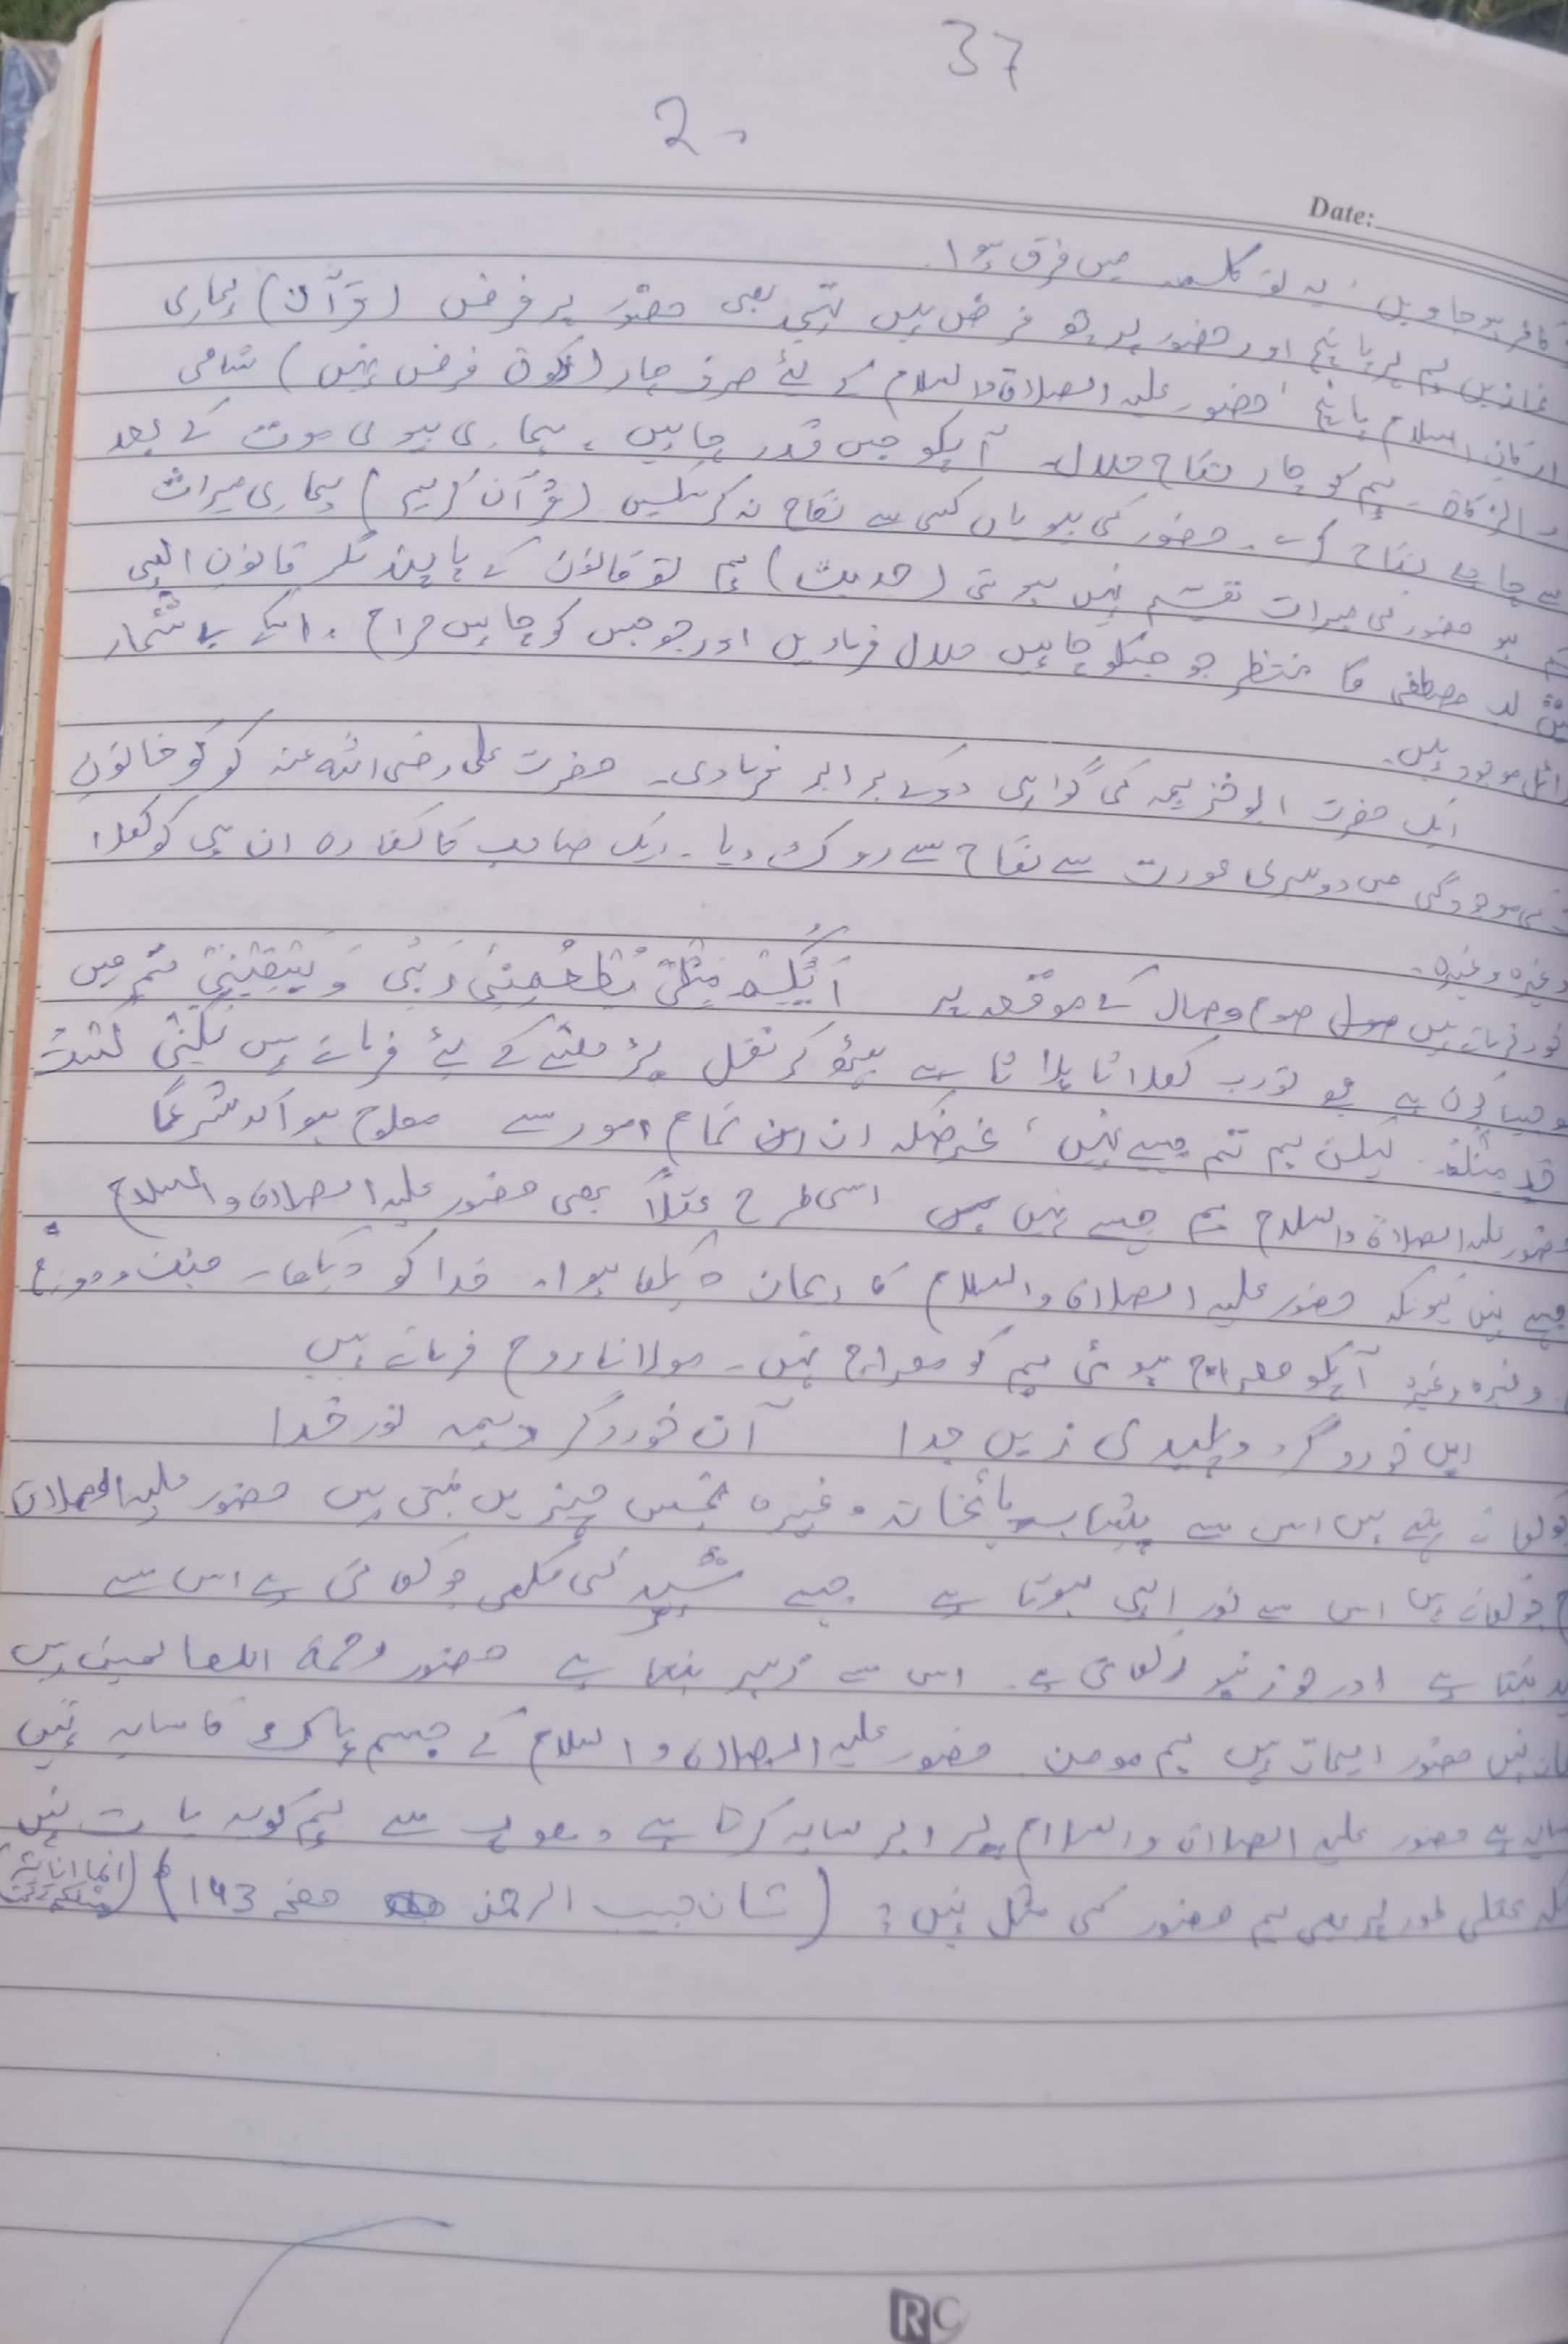 37
2
Date:
کافر ہو جاویں ' یہ تو کلمہ میں فرق ہوا۔
نمازیں ہم پر پانچ اور حضور پر چھ فرض ہیں تہجد بھی حضور پر فرض (قرآن) ہماری
ارکان اسلام پانچ ' حضور علیہ الصلاۃ والسلام کے لئے صرف چار (زکوۃ فرض نہیں) شامی
الزکاۃ۔ ہم کو چار نکاح حلال۔ آپکو جس قدر چاہیں، ہماری بیوی موت کے بعد
سے چاہے نکاح کرے۔ حضور کی بیویاں کسی سے نکاح نہ کر سکیں (قرآن کریم) ہماری میراث
ہو حضور کی میراث تقسیم نہیں ہوتی (حدیث) ہم تو قانون کے پابند مگر قانون الہی
لب مصطفی کا منتظر جو جسکو چاہیں حلال فرمادیں اور جو جس کو چاہیں حرام۔ اسکے بے شمار
موجود ہیں۔
ایک حضرت ابو خزیمہ کی گواہی دو کے برابر فرمادی۔ حضرت علی رضی اللہ عنہ کو کو خاتون
کی موجودگی میں دوسری عورت سے نکاح سے روک دیا۔ ایک صاحب کا کفارہ ان ہی کو کھلا
وغیرہ وغیرہ۔
خود فرماتے ہیں صوم وصال کے موقعہ پر اَیُّکُم مِثْلِی یُطْعِمُنِی رَبِّی وَ یَسْقِیْنِی تم میں
جیسا کون ہے جو تو رب کھلاتا پلاتا ہے بیٹھ کر نفل پڑھنے کے لئے فرماتے ہیں لٰکِنِّی لَسْتُ
مثلکم لیکن ہم تم جیسے نہیں ' غرضکہ ان تمام امور سے معلوم ہوا کہ شرعًا
حضور علیہ الصلاۃ والسلام ہم جیسے نہیں ہیں اسی طرح عقلاً بھی حضور علیہ الصلاۃ والسلام
جیسے نہیں کیونکہ حضور علیہ الصلاۃ والسلام کا ایمان دیکھا ہوا۔ خدا کو دیکھا۔ جنت و دوزخ
وغیرہ وغیرہ آپکو معراج ہوئی ہم کو معراج نہیں۔ مولانا روم فرماتے ہیں
ایں خورد گردد پلیدی زیں جدا آن خورد گردد ہمہ نور خدا
کھاتے ہیں اس سے پیشاب پائخانہ وغیرہ نجس چیزیں بنتی ہیں حضور علیہ الصلاۃ
جو کھاتے ہیں اس سے نور الہی ہوتا ہے جیسے شہد کی مکھی جو کھاتی ہے اس سے
بنتا ہے اور جو زنبور کھاتی ہے۔ اس سے زہر بنتا ہے حضور رحمۃ اللعالمین ہیں
نہیں حضور ایمان ہیں ہم مومن۔ حضور علیہ الصلاۃ والسلام کے جسم پاک کا سایہ نہیں
سایہ ہے حضور علیہ الصلاۃ والسلام پر ابر سایہ کرتا ہے دھوپ سے ہم کو یہ بات نہیں
عقلی طور پر بھی ہم حضور کی مثل نہیں : (شان حبیب الرحمن صفحہ 143) (انما انا بشر مثلکم
RC